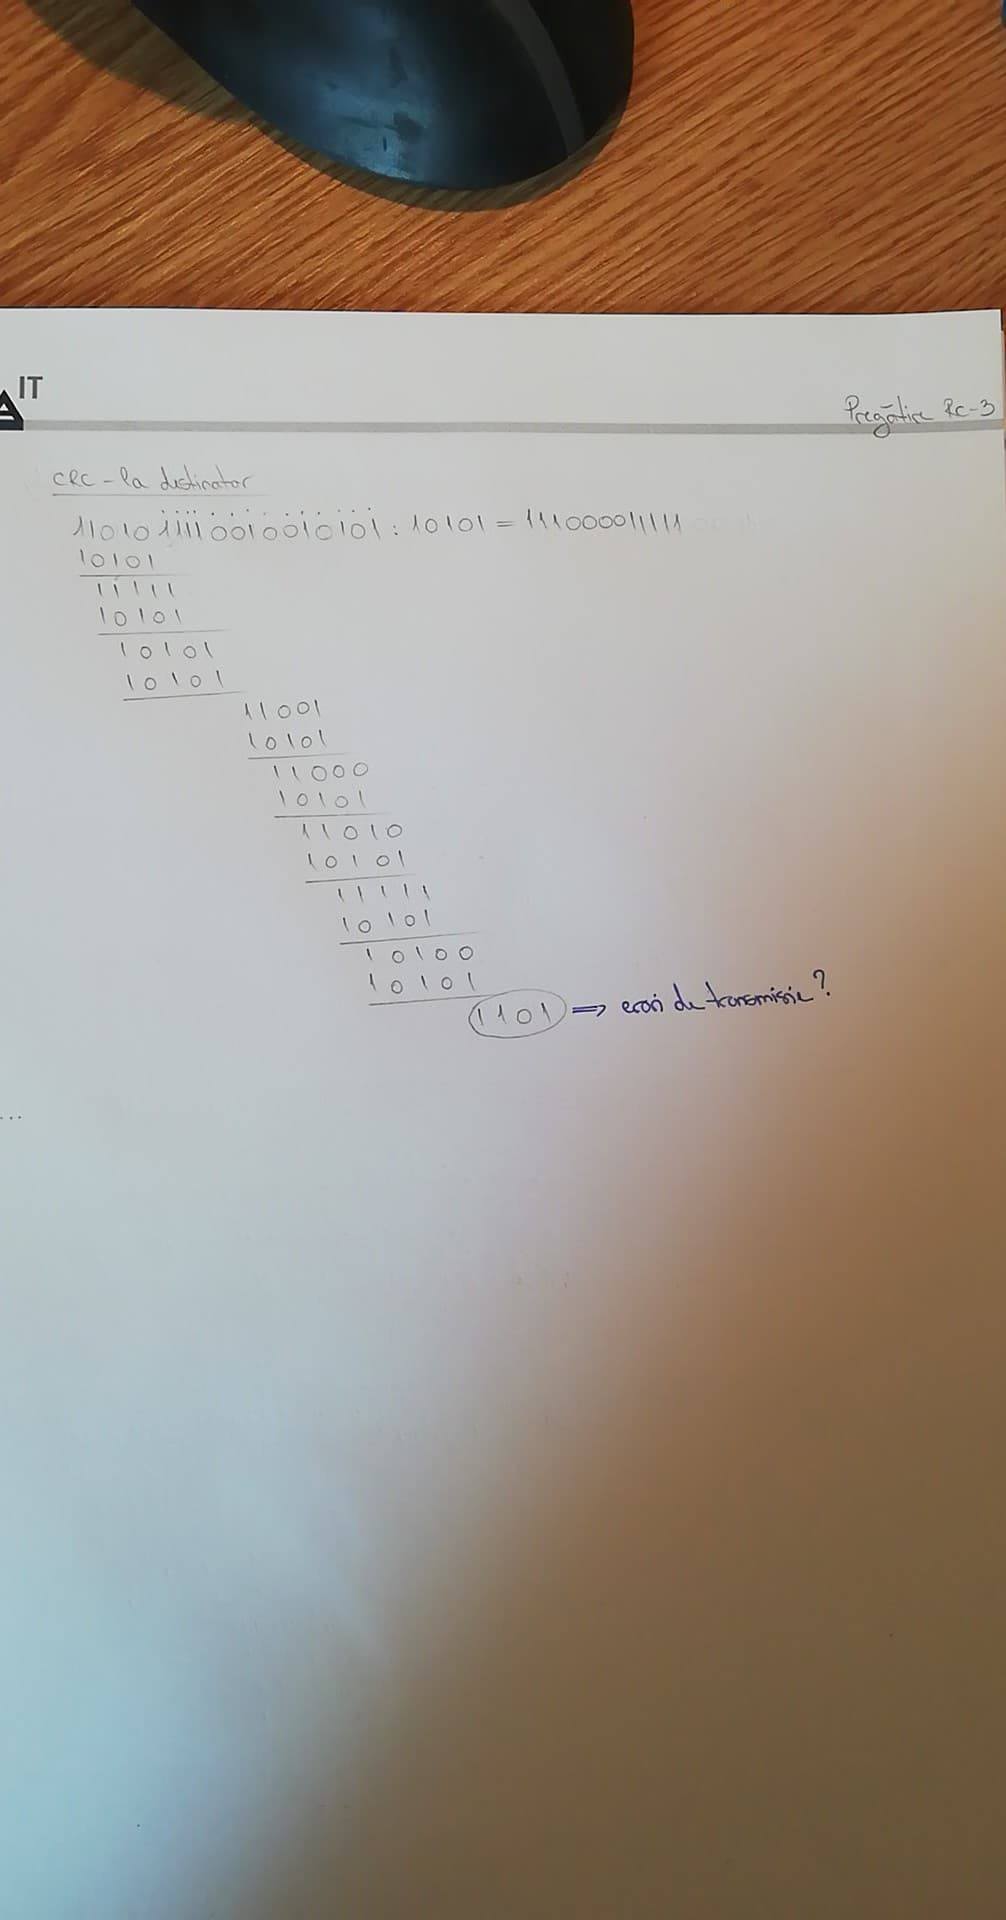 IT
Pregătire RC-3
CRC - la destinator
11010111100100010101 : 10101 = 111000011111
10101
11111
10101
10101
10101
11001
10101
11000
10101
11010
10101
11111
10101
10100
10101
1101 => erori de transmisie?
...